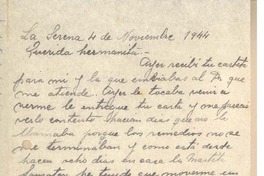 La Serena 4 de Noviembre 1944
Querida hermanita:-
Ayer recibí tu cartita
para mi y la que enviabas al Dr que
me atiende. Ayer le tocaba venir a
verme le entregué tu carta y me pareció
verlo contento. Hacían días que no lo
llamaba porque los remedios no se
me terminaban y como está desde
hacen ocho días en casa la
que moverme en